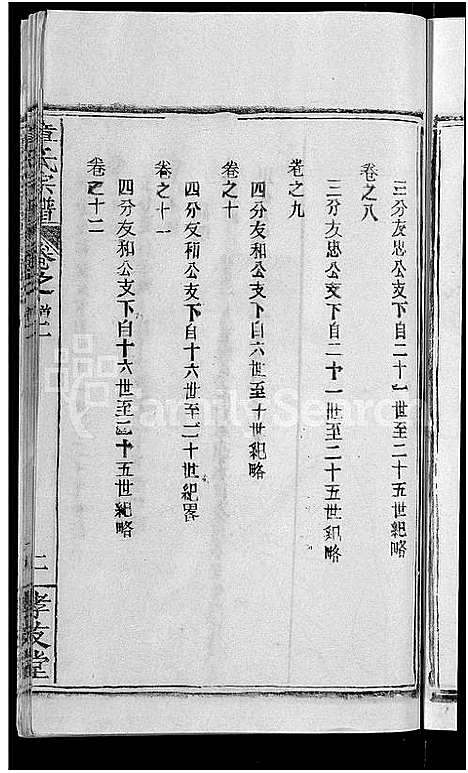 三分友忠公支下自二十一世至二十五世紀略
卷之八
三分友忠公支下自二十一世至二十五世紀略
卷之九
四分友和公支下自六世至十世紀略
卷之十
四分友和公支下自十六世至二十世紀畧
卷之十一
四分友和公支下自十六世至二十五世紀略
卷之十二
章氏宗譜
卷之首二
二
孝友堂
FamilySearch